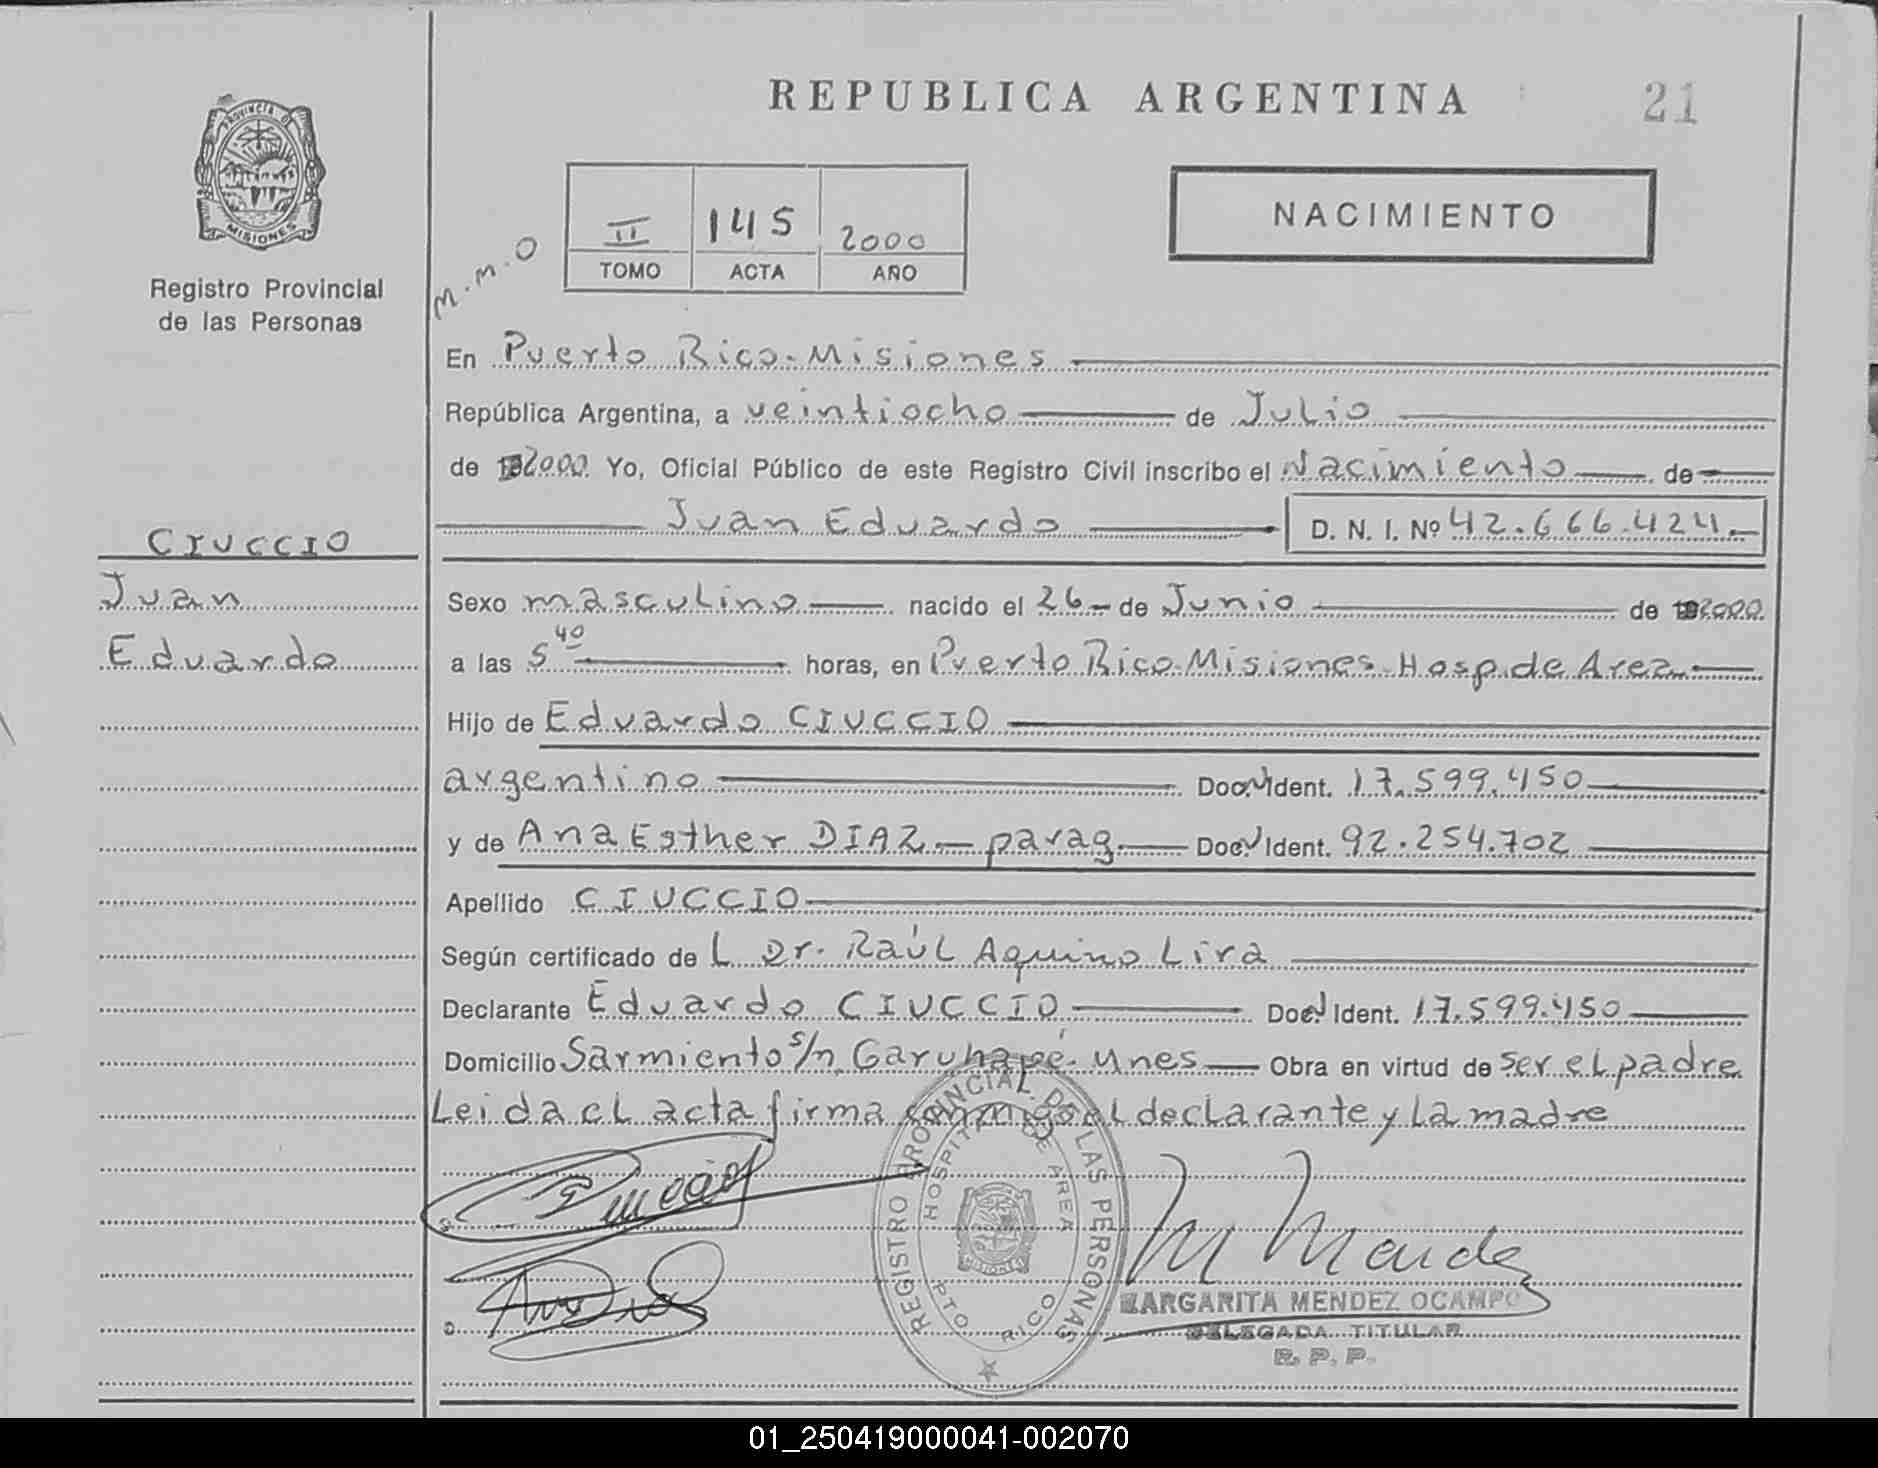 REPUBLICA ARGENTINA
21
PROVINCIA DE
MISIONES
Registro Provincial
de las Personas
II 145 2000
TOMO ACTA AÑO
NACIMIENTO
M.M.O
En Puerto Rico-Misiones
República Argentina, a veintiocho de Julio
de 2000. Yo, Oficial Público de este Registro Civil inscribo el Nacimiento de
Juan Eduardo D. N. I. Nº 42.666.424.-
CIUCCIO
Juan
Eduardo
Sexo masculino nacido el 26- de Junio de 2000
a las 5 40 horas, en Puerto Rico Misiones-Hosp.de Area-
Hijo de Eduardo CIUCCIO
argentino Doc. Ident. 17.599.450
y de Ana Esther DIAZ - parag. Doc. Ident. 92.254.702
Apellido CIUCCIO
Según certificado de L Dr. Raúl Aquino Lira
Declarante Eduardo CIUCCIO Doc. Ident. 17.599.450
Domicilio Sarmiento s/n Garuhapé-Mnes Obra en virtud de ser el padre
Leida el acta firma conmigo el declarante y la madre
REGISTRO PROVINCIAL DE LAS PERSONAS
HOSPITAL DE AREA
PTO RICO
MISIONES
M Mende
MARGARITA MENDEZ OCAMPO
DELEGADA TITULAR
R. P. P.
01_250419000041-002070